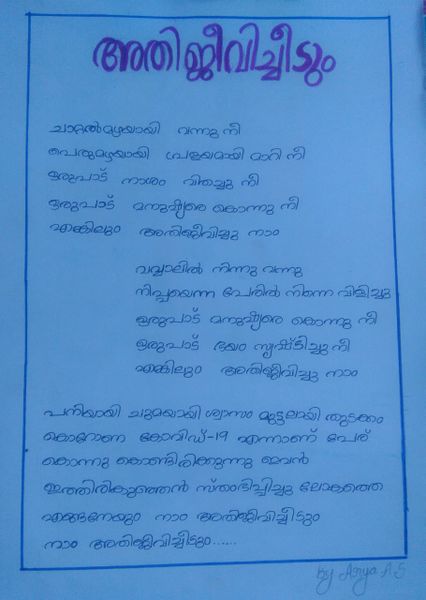 അതിജീവിച്ചീടും
ചാറ്റൽമഴയായി വന്നു നീ
പെരുമഴയായി പ്രളയമായി മാറി നീ
ഒരുപാട് നാശം വിതച്ചു നീ
ഒരുപാട് മനുഷ്യരെ കൊന്നു നീ
എങ്കിലും അതിജീവിച്ചു നാം
വവ്വാലിൽ നിന്നു വന്നു
നിപ്പയെന്ന പേരിൽ നിന്നെ വിളിച്ചു
ഒരുപാട് മനുഷ്യരെ കൊന്നു നീ
ഒരുപാട് ഭയം സൃഷ്ടിച്ചു നീ
എങ്കിലും അതിജീവിച്ചു നാം
പനിയായി ചുമയായി ശ്വാസം മുട്ടലായി തുടക്കം
കൊറോണ കോവിഡ്-19 എന്നാണ് പേര്
കൊന്നു കൊണ്ടിരിക്കുന്നു ഇവൻ
ഇത്തിരികുഞ്ഞൻ സ്തംഭിപ്പിച്ചു ലോകത്തെ
എങ്ങനേയും നാം അതിജീവിച്ചീടും
നാം അതിജീവിച്ചീടും......
by Arya A.S